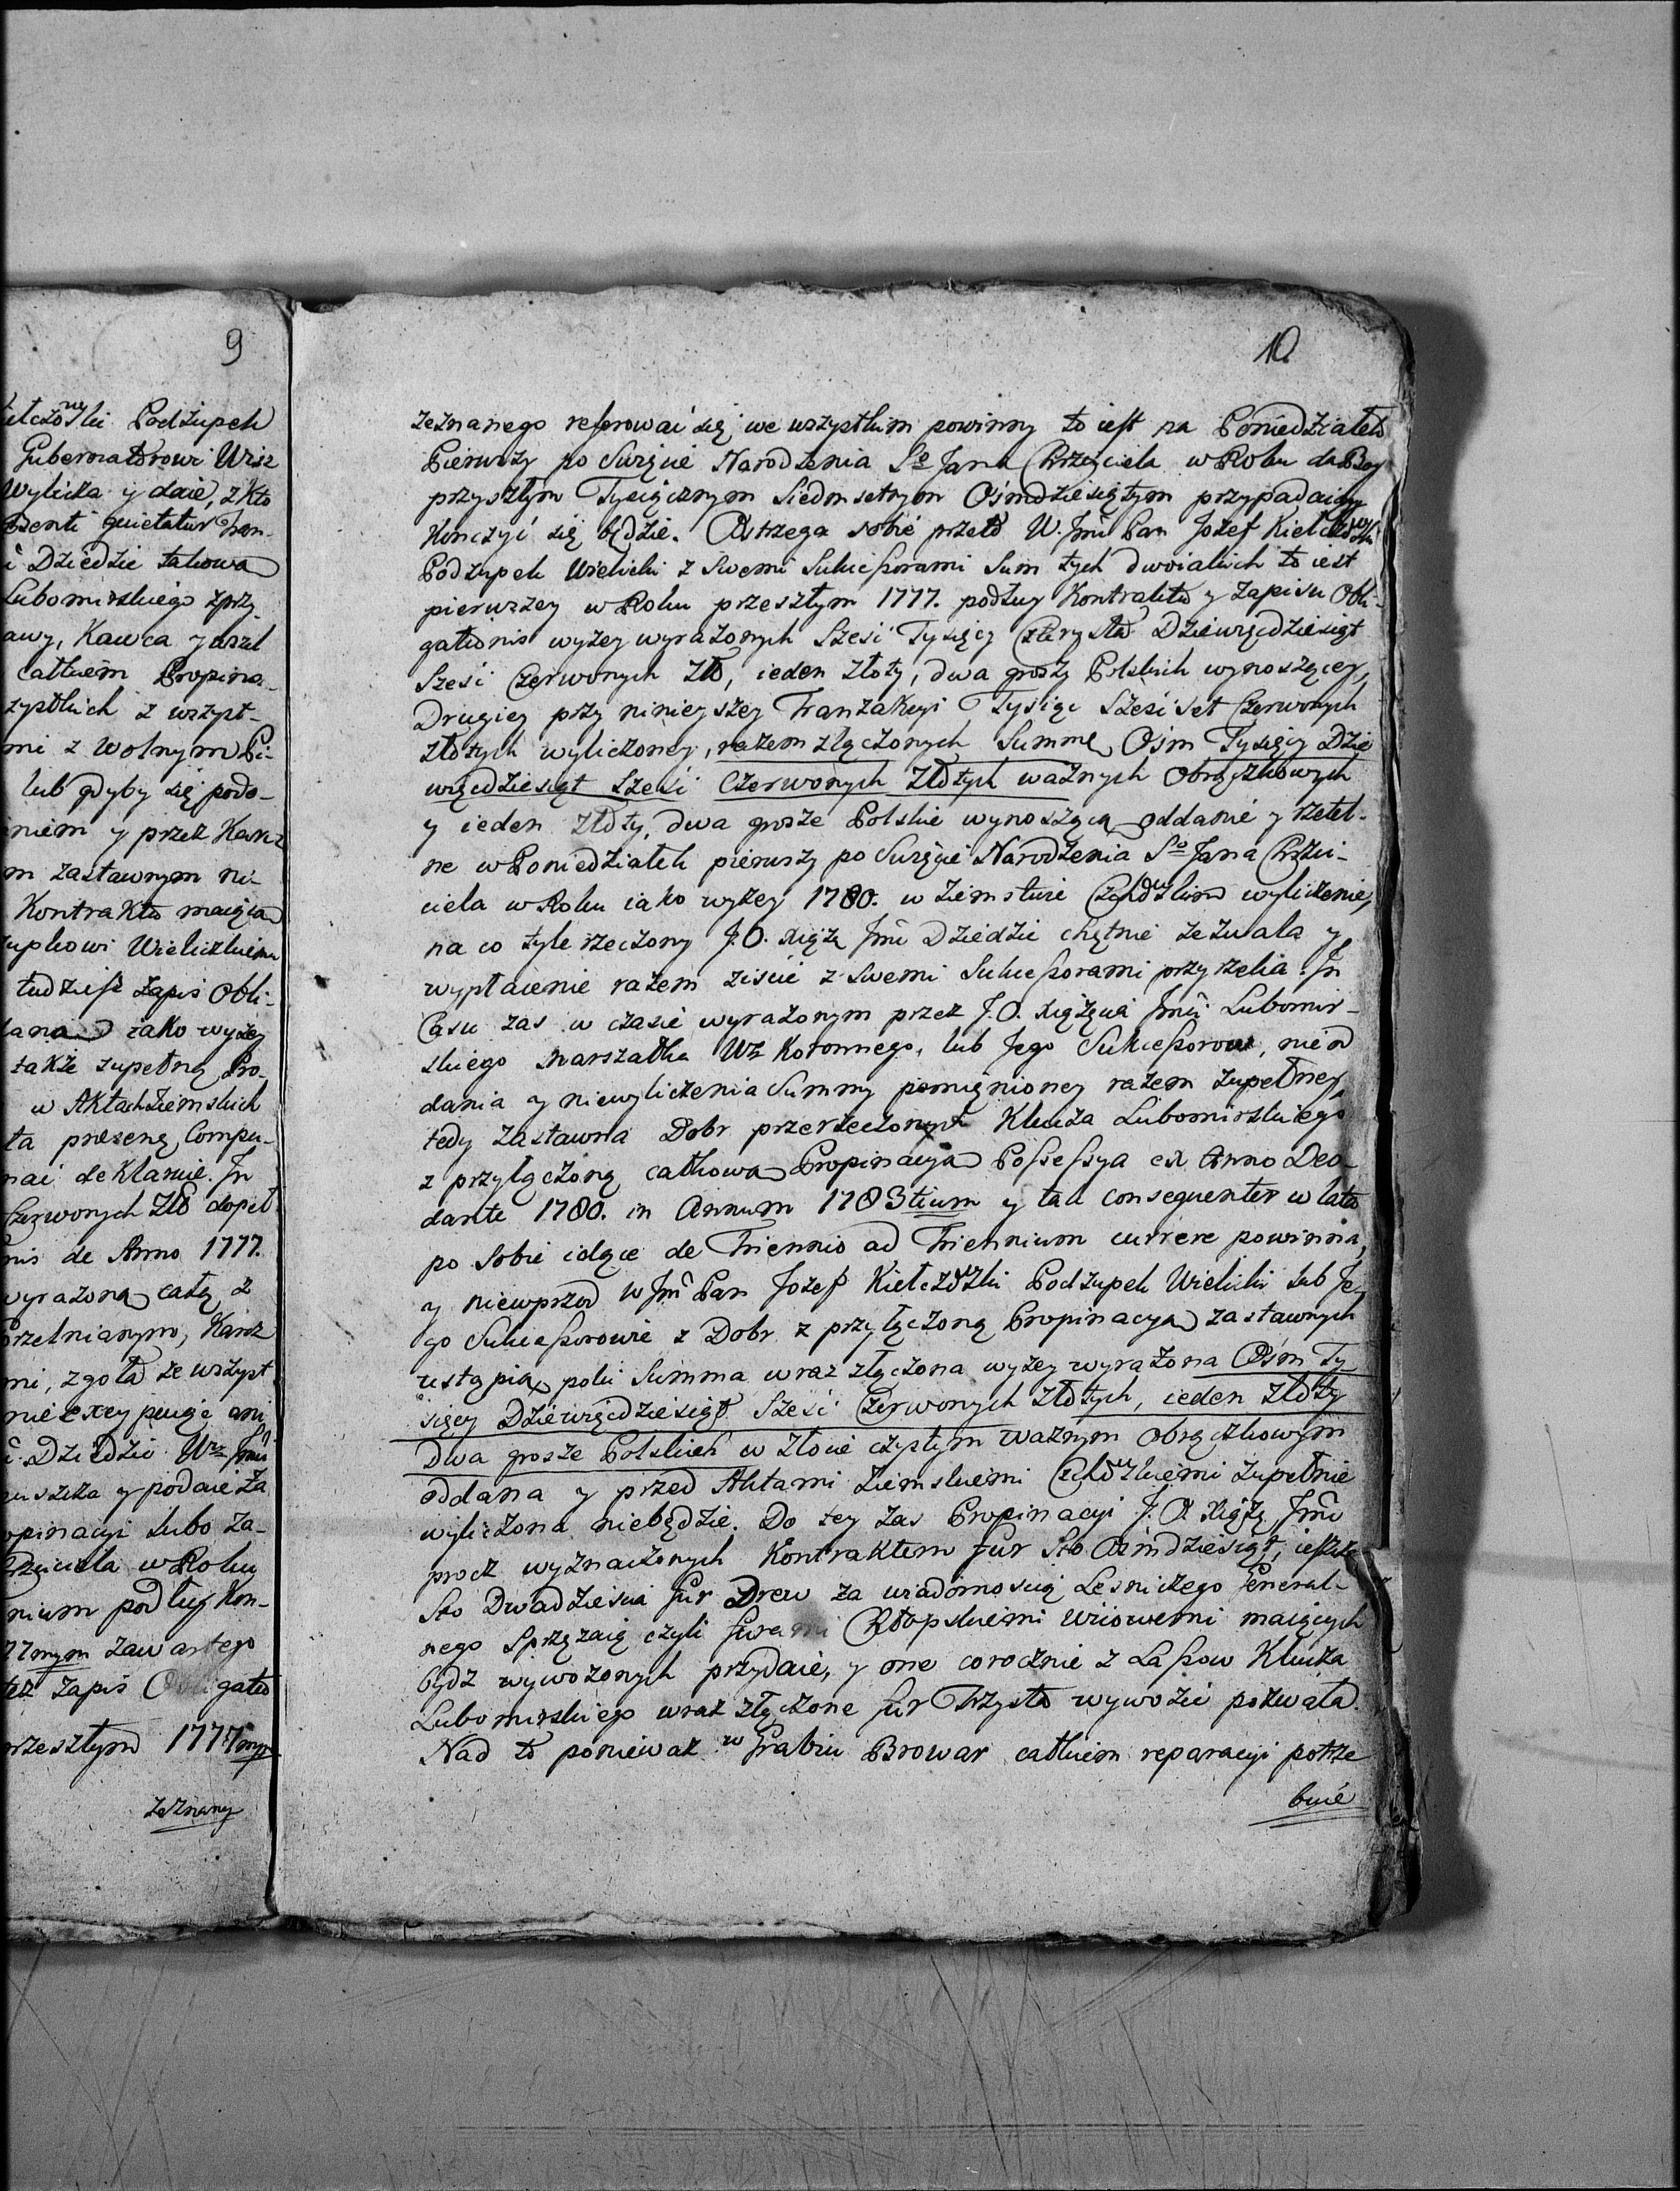 9
ełczowski Podżupek
Gubernatorowi Wisz
Wylicza y daie, z kto
Dziedzic takowa
Lubomirskiego z przy
awy, Kawca y wszel
całkiem Propina-
zystkich z wszyst-
mi z Wolnym Pi-
lub gdyby się podo-
niem y przez Karcz
m zastawnym ni-
Kontrakto maiąca
upkowi Wieliczkiemu
tudzież Zapis Obli-
iako wyżey
także zupełną Pro-
w Aktach Ziemskich
ta presens Compu-
nai deklaruie. In
Czerwonych Złło dopeł
nis de Anno 1777.
wyrażona całą z
Karcz
mi, zgoła ze wszyst
nie excypuiąc ani
Dziedzic
puszcza y podaie Za
opinacyi lubo Za-
Krzciciela w Roku
nium podług Kon-
77mym zawartego
też Zapis Obligatio
przeszłym 1777mym
Zeznany
10
zeznanego referować się we wszystkim powinny to iest na Poniedziałek
Pierwszy po Święcie Narodzenia So Jana Krzciciela w Roku da Bog
przyszłym Tysiącznym Siedmsetnym Osmdziesiątym przypadaiący
Konczyć się będzie. Ostrzega sobie przeto W. Jmć Pan Jozef Kiełczowski
Podżupek Wielicki z Swemi Sukceßorami Sum tych dwoiakich to iest
pierwszey w Roku przeszłym 1777. podług Kontraktu y Zapisu Obli-
gationis wyżey wyrażonych Sześć Tysięcy Czterysta Dziewięćdziesiąt
Sześć Czerwonych Złło, ieden złoty, dwa groszy Polskich wynoszącey,
Drugiey przy ninieyszey Tranzakcyi Tysiąc Sześć set Czerwonych
złotych wyliczoney, razem złączonych Summę Ośm Tysięcy Dzie
więćdziesiąt Sześć Czerwonych Złotych ważnych obrączkowych
y ieden Złoty, dwa grosze Polskie wynoszącą oddanie y rzetel-
ne w Poniedziałek pierwszy po Święcie Narodzenia So Jana Krzci-
ciela w Roku iako wyżey 1780. w Ziemstwie Czchowskim wyliczenie,
na co tyle rzeczony J.O. Xiążę Jmć Dziedzic chętnie zezwala y
wypłacenie razem ziścić z Swemi Sukceßorami przyrzeka. In
Casu zas w czasie wyrażonym przez J.O. Xiążęcia Jmći Lubomir-
skiego Marszałka Wo Koronnego, lub Jego Sukceßorow, nieod
dania y niewyliczenia Summy pomienioney razem zupełney,
tedy Zastawna Dobr przerzeczonych Klucza Lubomirskiego
z przyłączoną całkową Propinacyą Poßeßya ex Anno Deo
dante 1780. in Annum 1783tium y tak consequenter w lata
po sobie idące de Triennio ad Triennium currere powinna,
y niewprzod W Jmć Pan Jozef Kiełczowski Podżupek Wielicki lub Je-
go Sukceßorowie z Dobr z przyłączoną Propinacyą zastawnych
ustąpią, poki Summa wraz złączona wyżey wyrażona Ośm Ty
sięcy Dziewięćdziesiąt Sześć Czerwonych Złotych, ieden złoty
Dwa grosze Polskich w złocie czystym ważnym obrączkowym
oddana y przed Aktami Ziemskiemi Czchowskiemi zupełnie
wyliczona niebędzie. Do tey zas Propinacyi J.O. Xiążę Jmć
procz wyznaczonych Kontraktem fur Sto Ośmdziesiąt, ieszcze
Sto Dwadzieścia fur Drew za wiadomością Lesniczego General-
nego Sprzęzaią czyli furami Chłopskiemi wsiowemi maiących
bydz wywożonych przydaie, y one corocznie z Laßow Klucza
Lubomirskiego wraz złączone fur Trzysta wywozić pozwala.
Nad to ponieważ w Grabiu Browar całkiem reparacyi potrze
buie